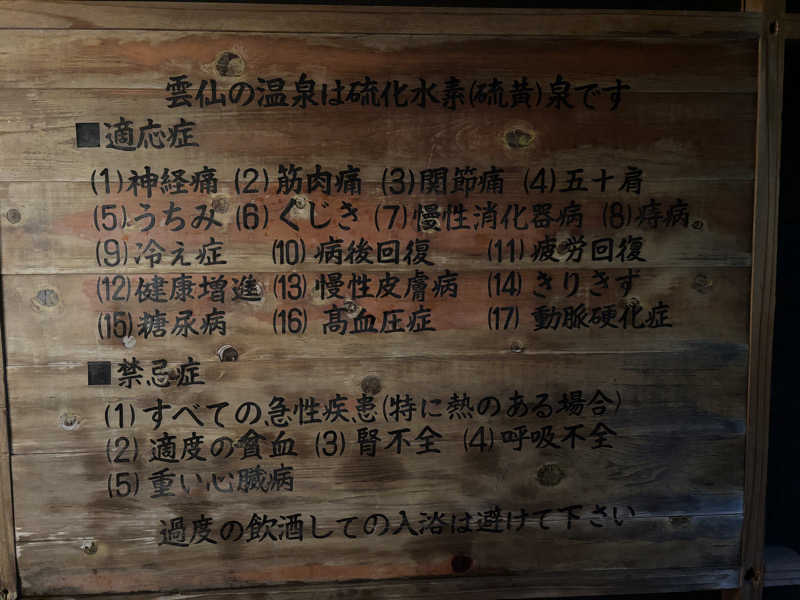 雲仙の温泉は硫化水素(硫黄)泉です
■適応症
(1)神経痛 (2)筋肉痛 (3)関節痛 (4)五十肩
(5)うちみ (6)くじき (7)慢性消化器病 (8)痔病。
(9)冷え症 (10)病後回復 (11)疲労回復
(12)健康増進 (13)慢性皮膚病 (14)きりきず
(15)糖尿病 (16)高血圧症 (17)動脈硬化症
■禁忌症
(1)すべての急性疾患(特に熱のある場合)
(2)適度の貧血 (3)腎不全 (4)呼吸不全
(5)重い心臓病
過度の飲酒しての入浴は避けて下さい